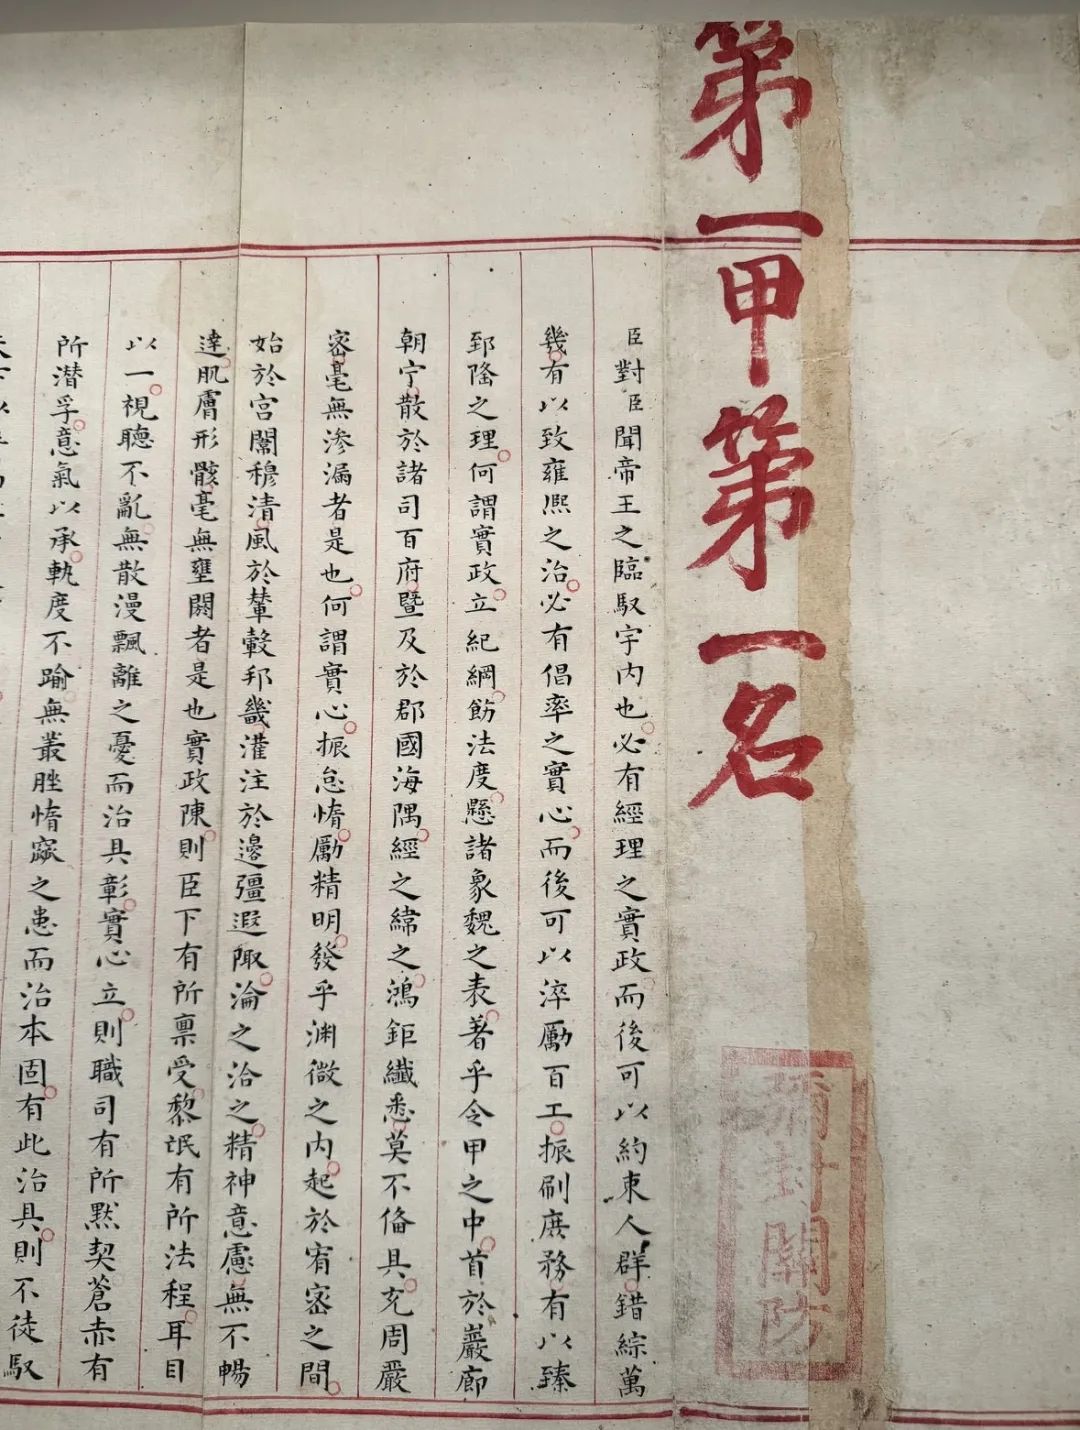 第一甲第一名
彌封關防
臣對臣聞帝王之臨馭宇内也必有經理之實政而後可以約束人群錯綜萬
幾有以致雍熈之治必有倡率之實心而後可以淬勵百工振刷庶務有以臻
郅隆之理何謂實政立紀綱飭法度懸諸象魏之表著乎令甲之中首於巖廊
朝宁散於諸司百府暨及於郡國海隅經之緯之鴻鉅纖悉莫不俻具充周嚴
宻毫無滲漏者是也何謂實心振怠惰勵精明發乎渊微之内起於宥宻之間
始於宫闈穆清風於輦轂邦畿灌注於邊疆遐陬淪之洽之精神意慮無不暢
達肌膚形骸毫無壅閼者是也實政陳則臣下有所禀受黎氓有所法程耳目
以一視聽不亂無散漫飄離之憂而治具彰實心立則職司有所黙契蒼赤有
所潜孚意氣以承軌度不踰無叢脞惰窳之患而治本固有此治具則不徒馭